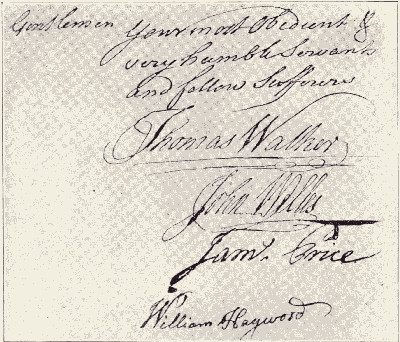 Gentlemen
Your most Obedient &
very humble Servants
and fellow Sufferers
Thomas Walker
John Wills
Jam.s Price
William Haywood